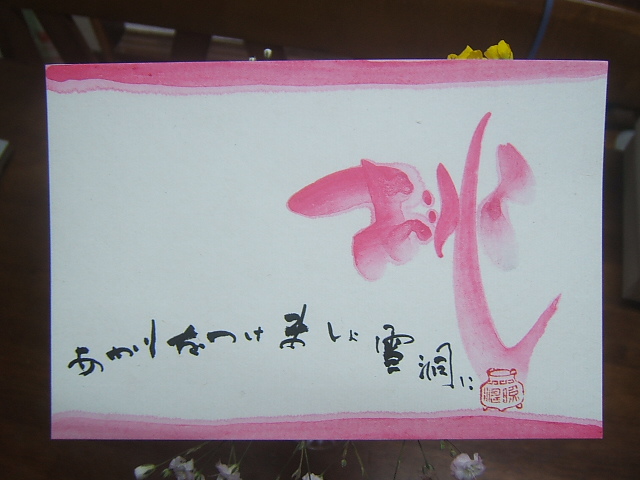 あかりをつけましょ雪洞に